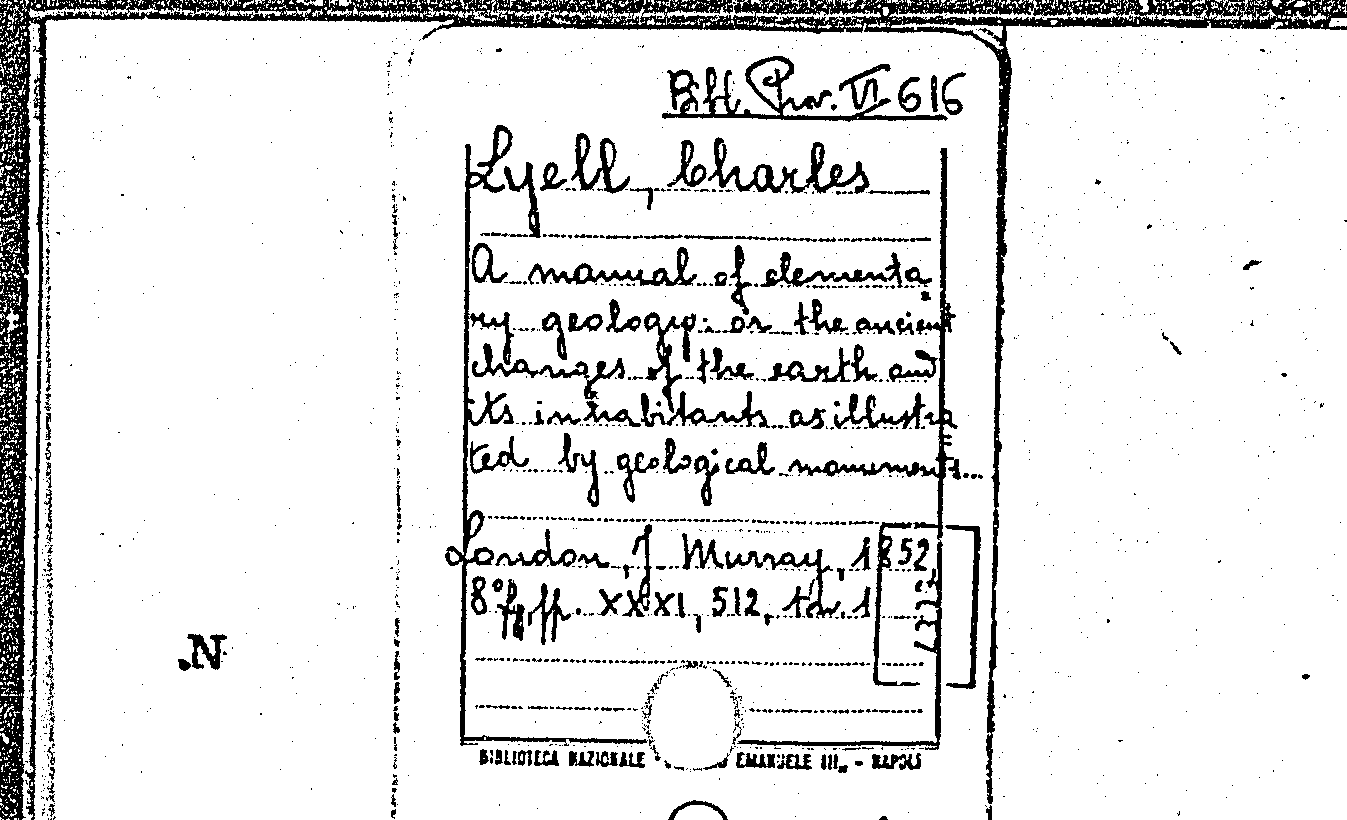 Bibl. Prov. VI 616
Lyell, Charles
A manual of elementa
ry geology: or the ancient
changes of the earth and
its inhabitants as illustra
ted by geological monuments...
London, J. Murray, 1852,
8° pp. XXXI, 512, tav. 1
N.
BIBLIOTECA NAZIONALE EMANUELE III„ - NAPOLI